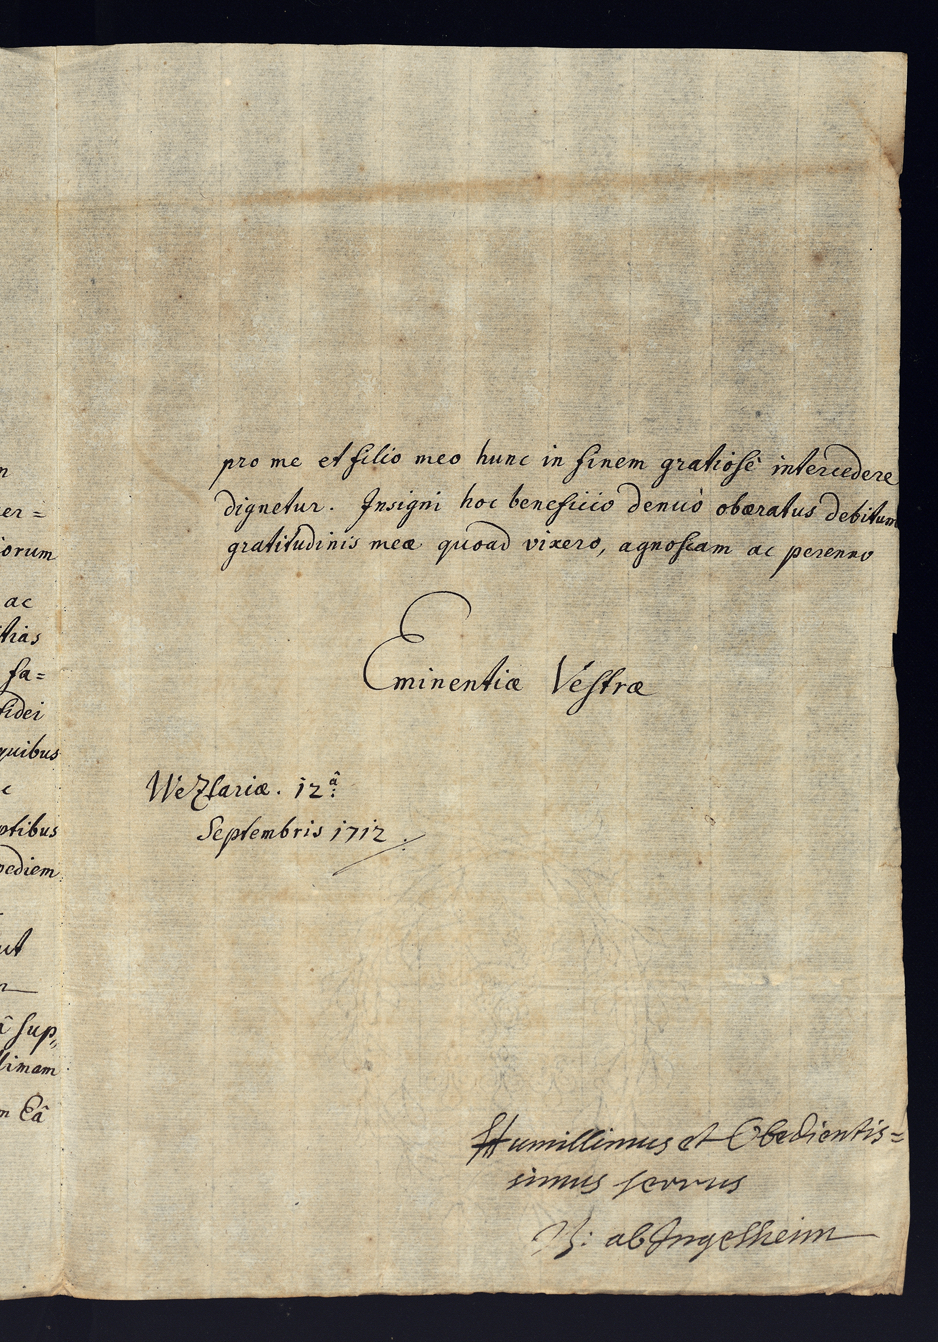 n
er=
iorum
ac
itias
fa=
fidei
quibus
c
ptibus
pediem
ut
â sup„
llimam
m Eâ
pro me et filio meo hunc in finem gratiosè intercedere
dignetur. Insigni hoc beneficio denuò obæratus debitum
gratitudinis meæ quoad vixero, agnoscam ac perenno
Eminentiæ Vestræ
Wezlariæ. 12â.
Septembris 1712.
Humillimus et Obedientis=
simus servus
ab Ingelheim